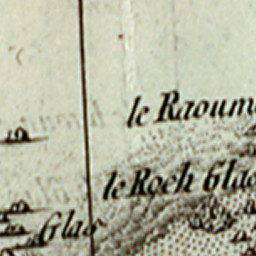 le Raoum
le Roch Glac
Glas